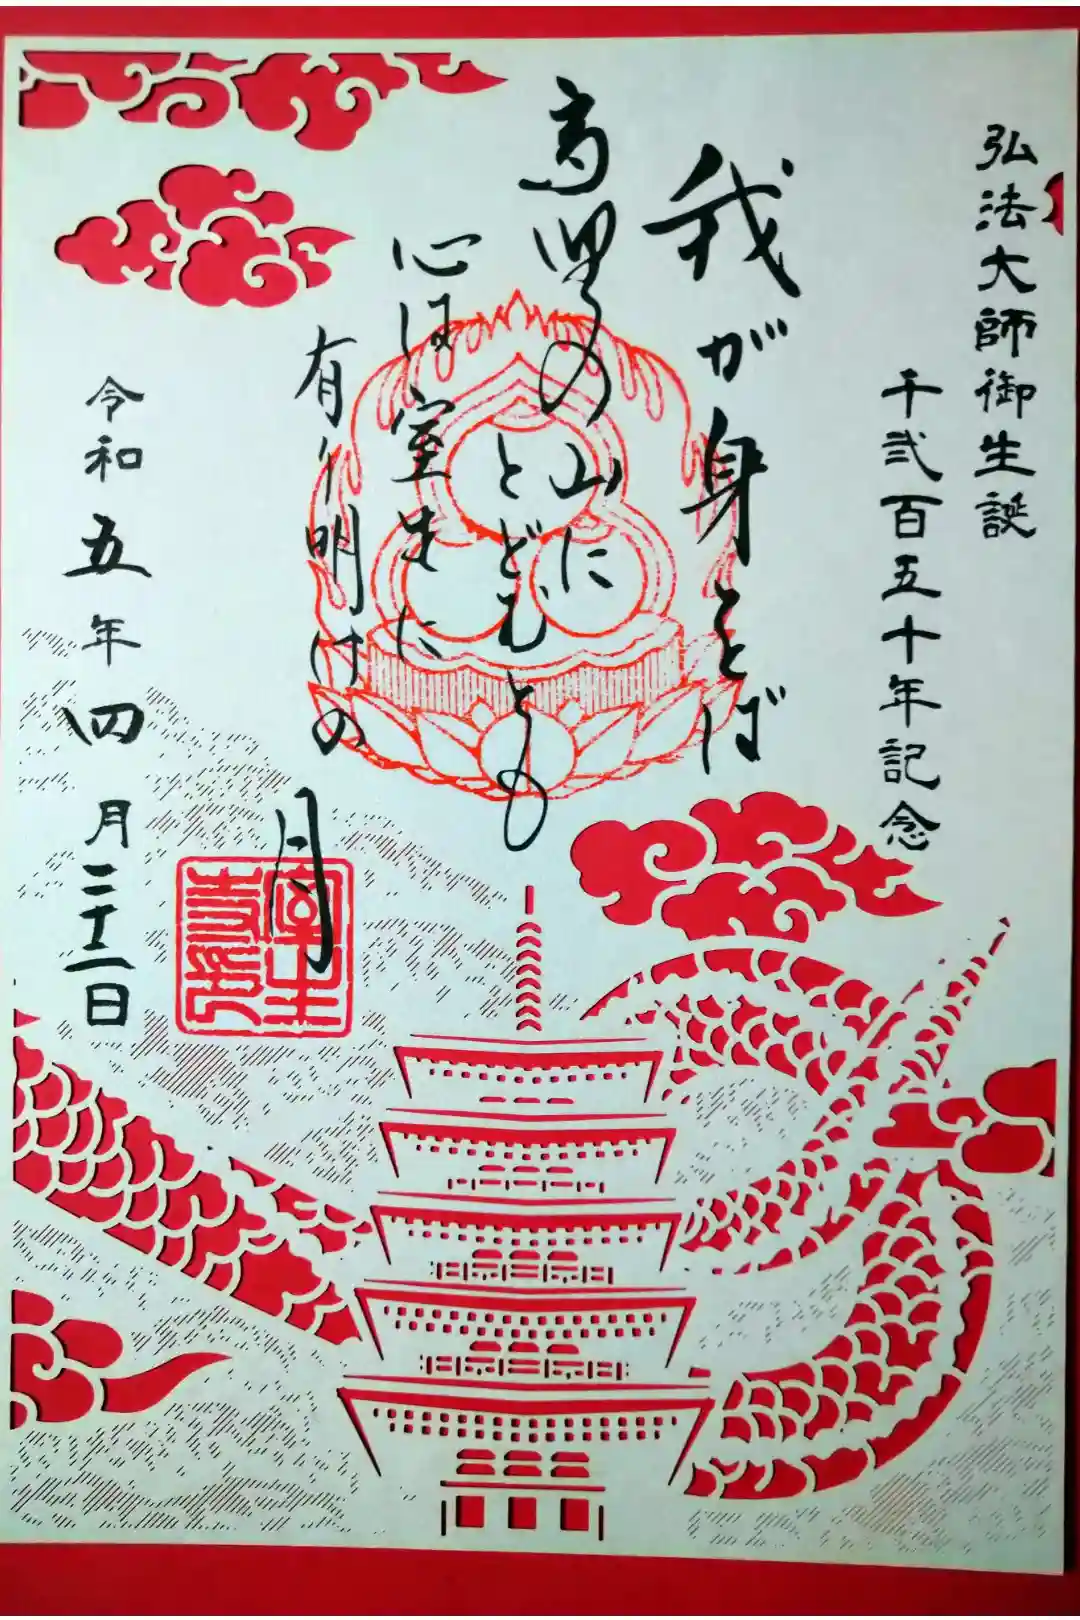 弘法大師御生誕
千弐百五十年記念
我が身をば
高野の山に
とどむとも
心は室生に
有り明けの
月
令和五年四月二十一日